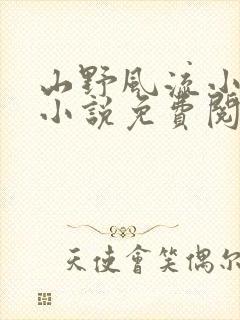 山野風流小
小說免費閱
天使會笑偶尔